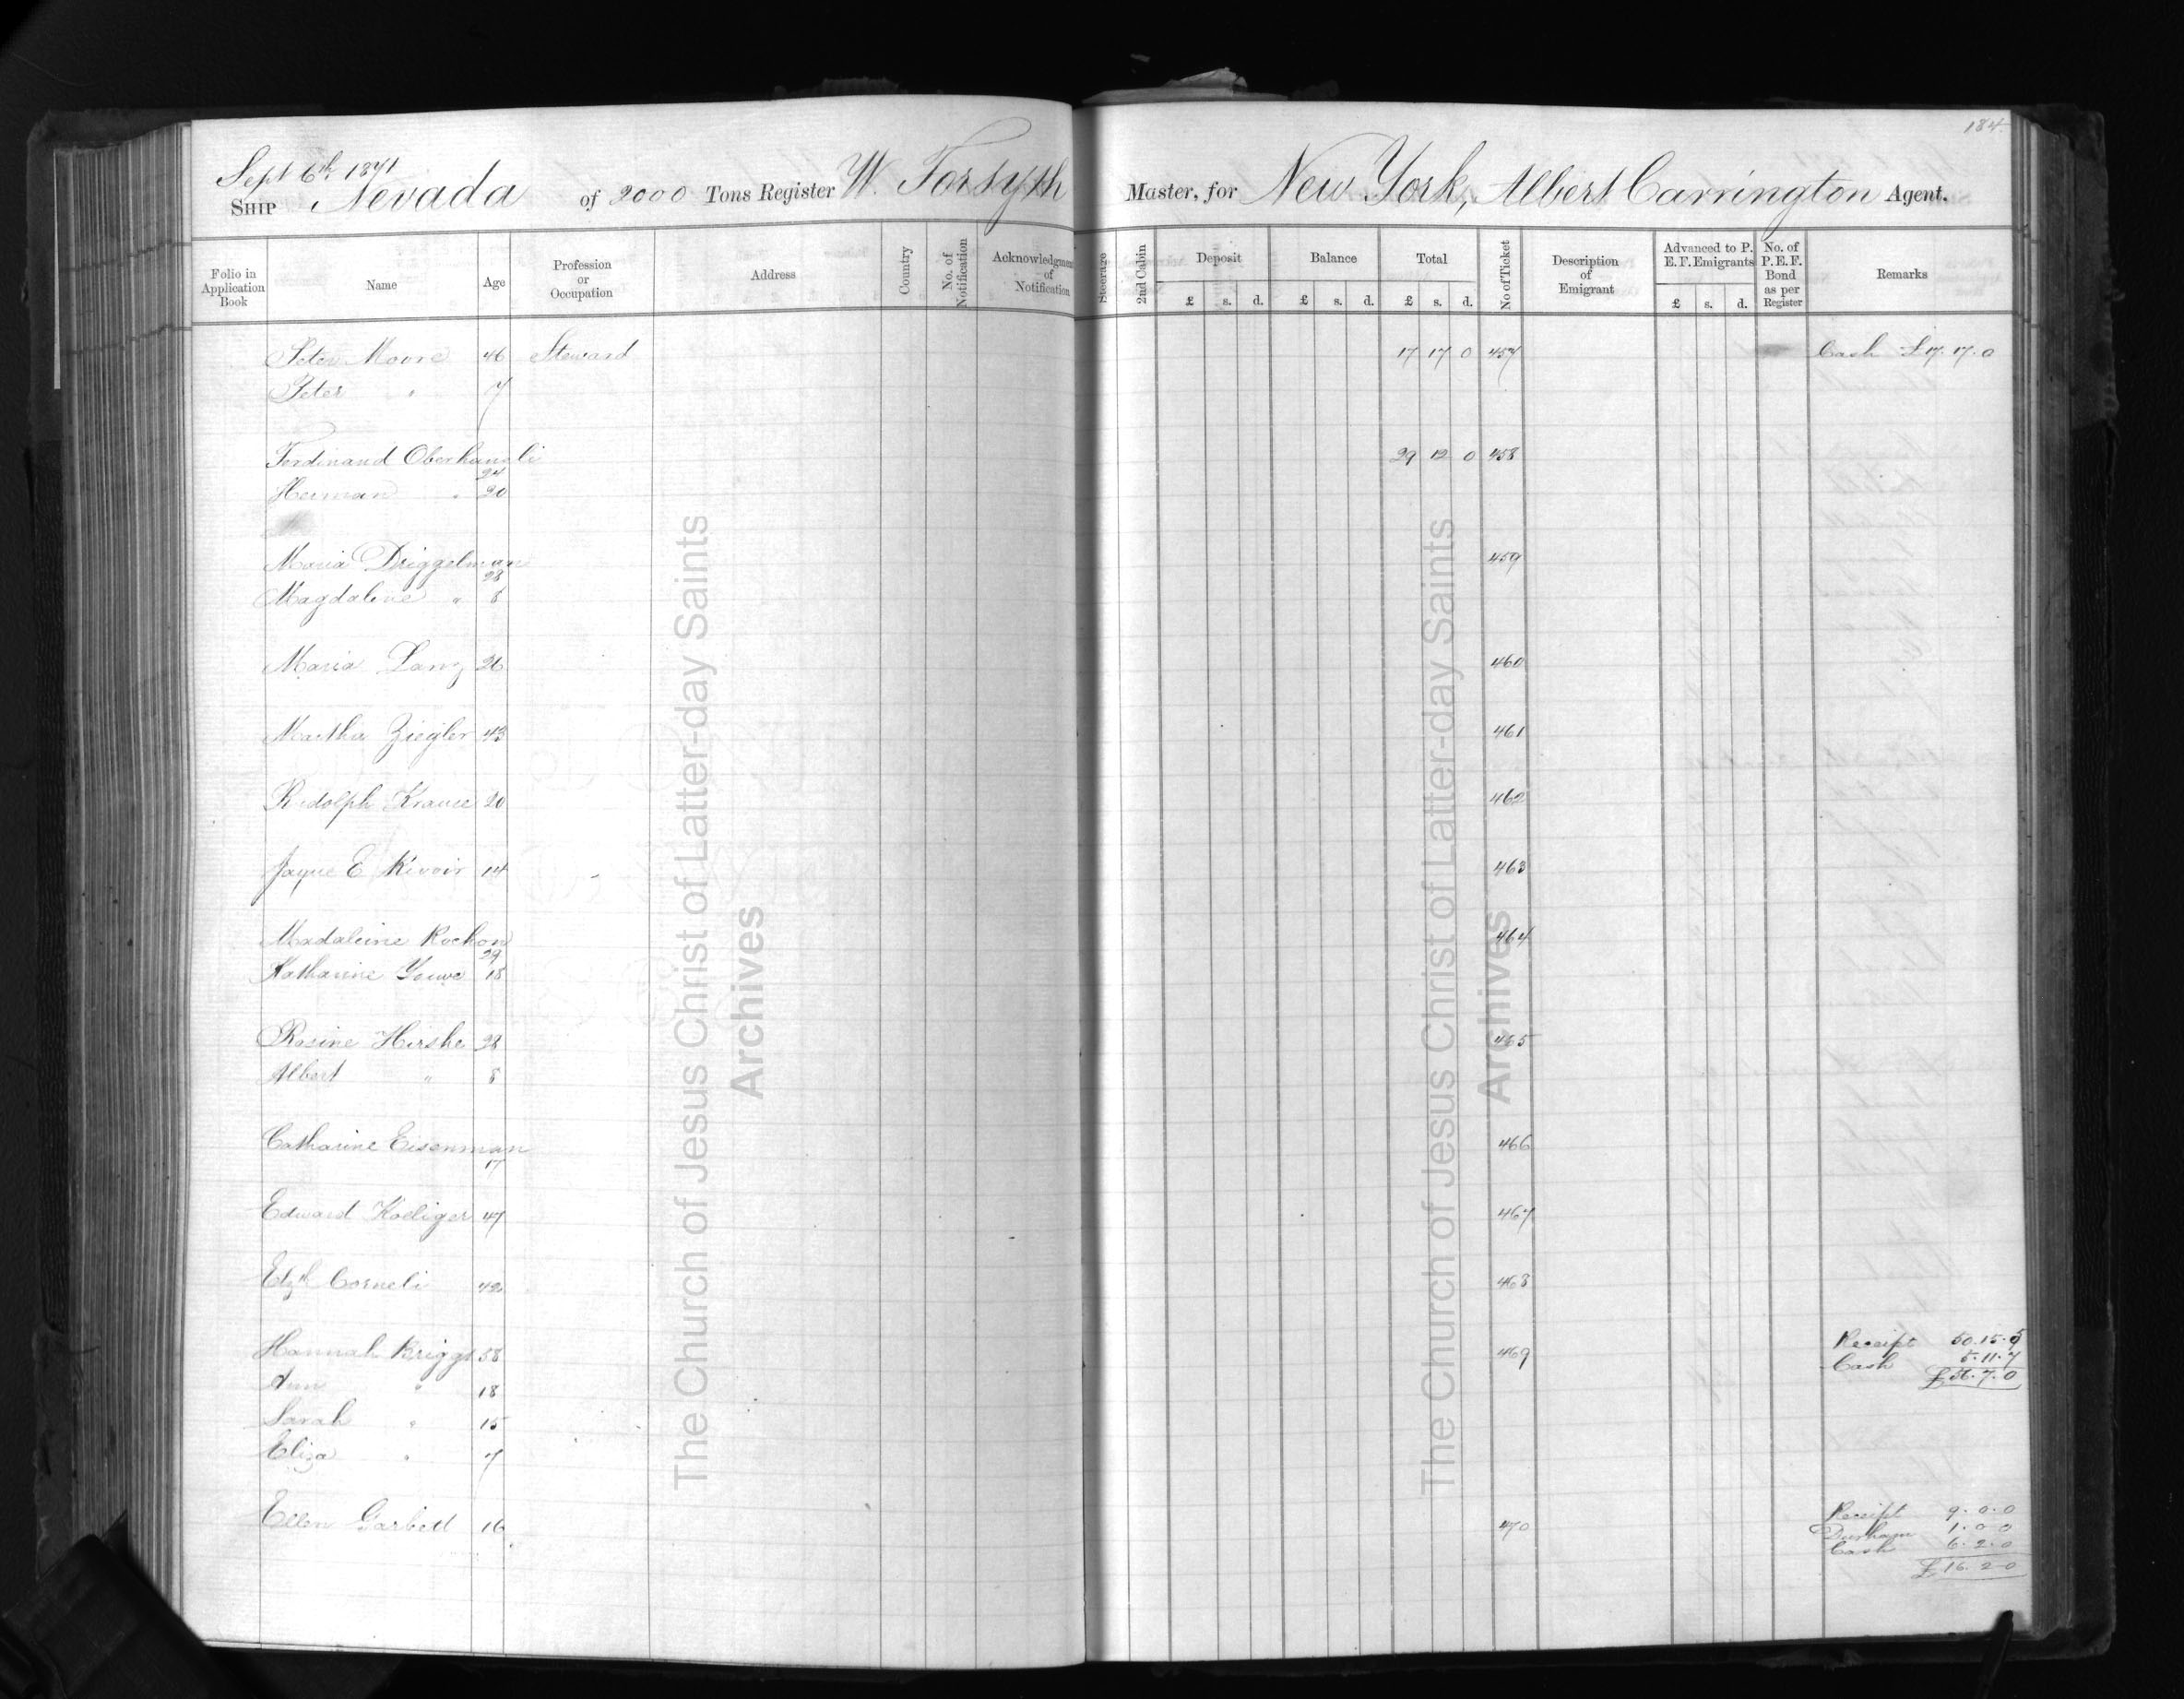 184
Sept 6th 1871
SHIP Nevada of 2000 Tons Register W. Forsyth Master, for New York, Albert Carrington Agent.
Folio in Application Book | Name | Age | Profession or Occupation | Address | Country | No. of Notification | Acknowledgment of Notification | Steerage | 2nd Cabin | Deposit £ s. d. | Balance £ s. d. | Total £ s. d. | No of Ticket | Description of Emigrant | Advanced to P. E. F. Emigrants £ s. d. | No. of P.E.F. Bond as per Register | Remarks
Peter Moore 46 Steward 17 17 0 457 Cash £17.17.0
Peter " 7
Ferdinand Oberhansli 24 29 12 0 458
Herman " 20
Maria Briggelman 28 459
Magdaline " 8
Maria Lanz 26 460
Martha Ziegler 43 461
Rudolph 20 462
E 14 463
Madaleine Rochon 29 464
Katharine 18
Rosine Hirshe 28 465
Albert " 8
Catharine Eisenman 17 466
Edward 47 467
Elzth Corneli 42 468
Hannah Briggs 58 469 Receipt 50.15.5
Cash 5.11.7
£56.7.0
Ann " 18
Sarah " 15
Eliza " 7
Ellen Garbett 16 470 Receipt 9.0.0
Durham 1.0.0
Cash 6.2.0
£16.2.0
The Church of Jesus Christ of Latter-day Saints
Archives
The Church of Jesus Christ of Latter-day Saints
Archives